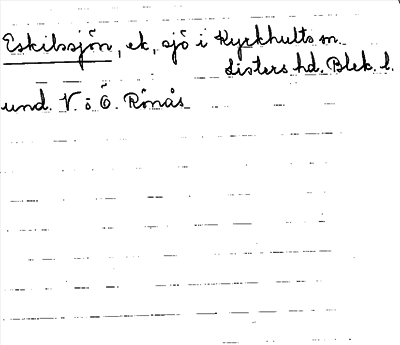 Eskilssjön, ek, sjö i Kyrkhults sn.
Listers hd. Blek. l.
und. V. o Ö. Rönås